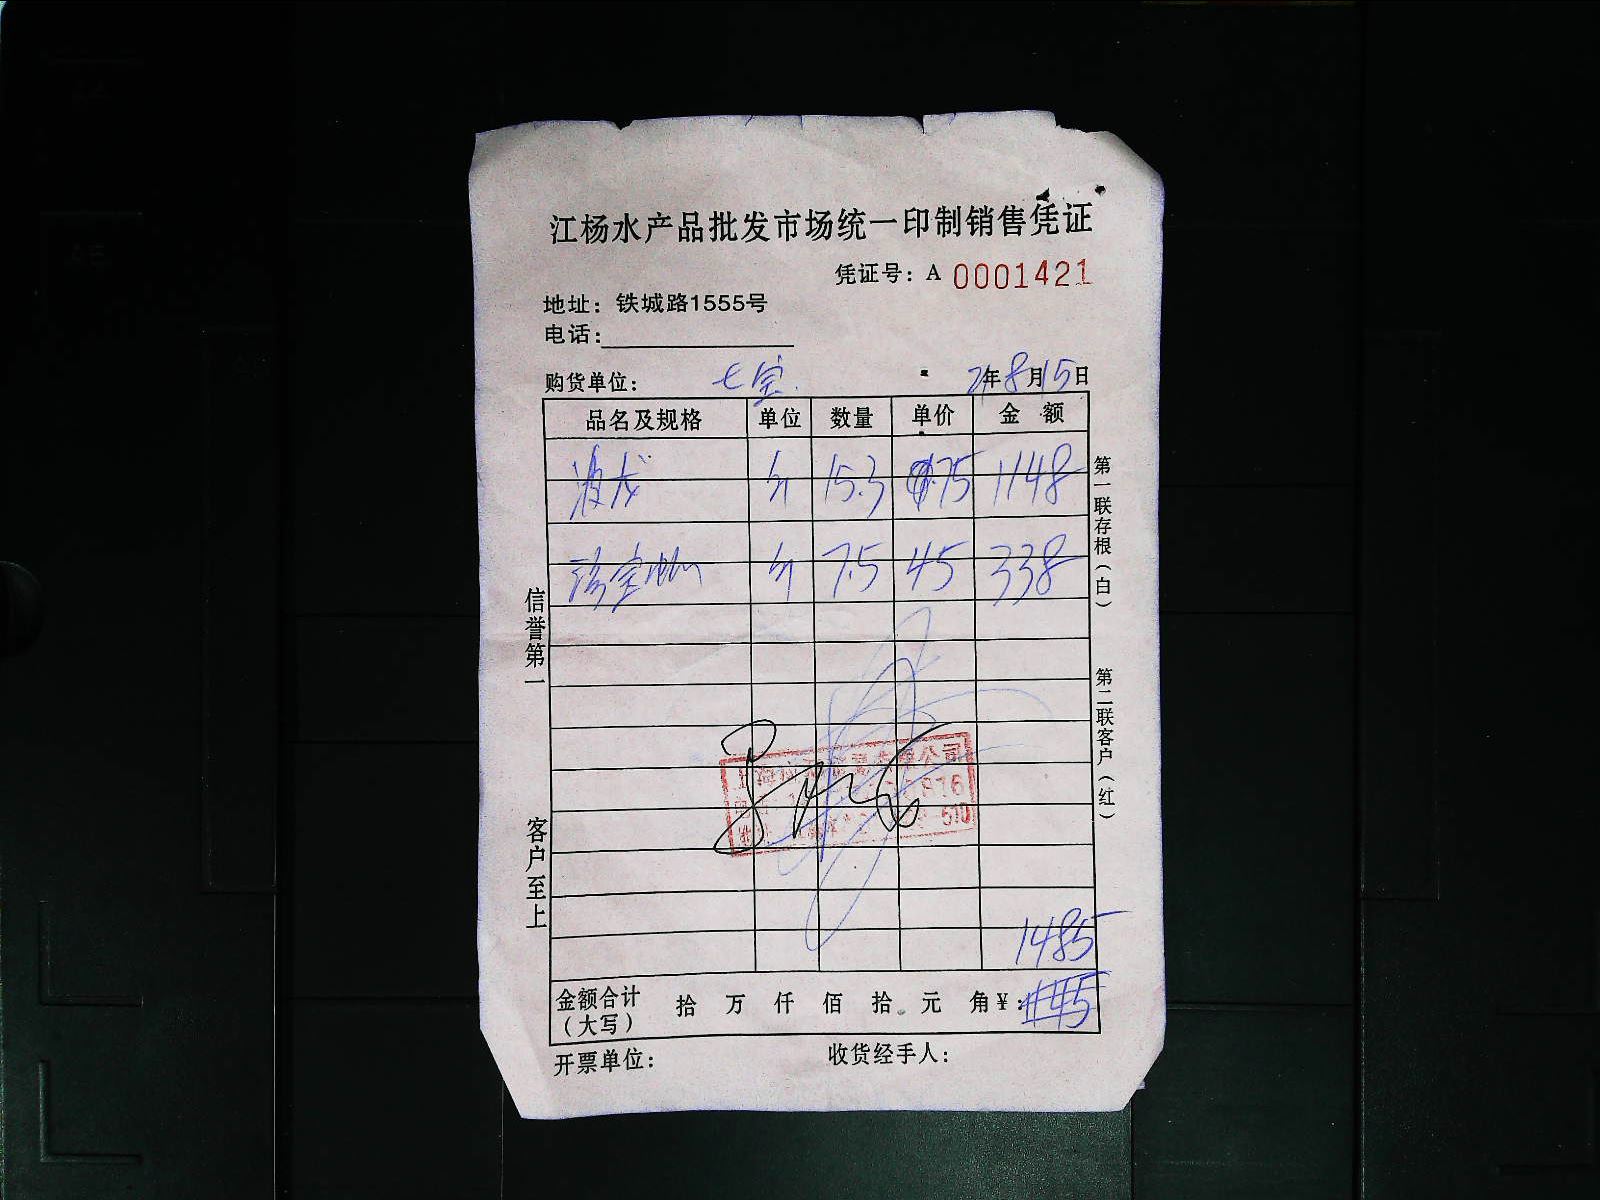 江杨水产品批发市场统一印制销售凭证
凭证号：A 0001421
地址：铁城路1555号
电话：
购货单位： 七宝 年8月15日
品名及规格 单位 数量 单价 金额
波龙 斤 15.3 75 1148
珍宝蟹 斤 7.5 45 338
信誉第一
客户至上
第一联存根（白）
第二联客户（红）
1485
金额合计（大写） 拾 万 仟 佰 拾 元 角 ¥：
开票单位： 收货经手人：